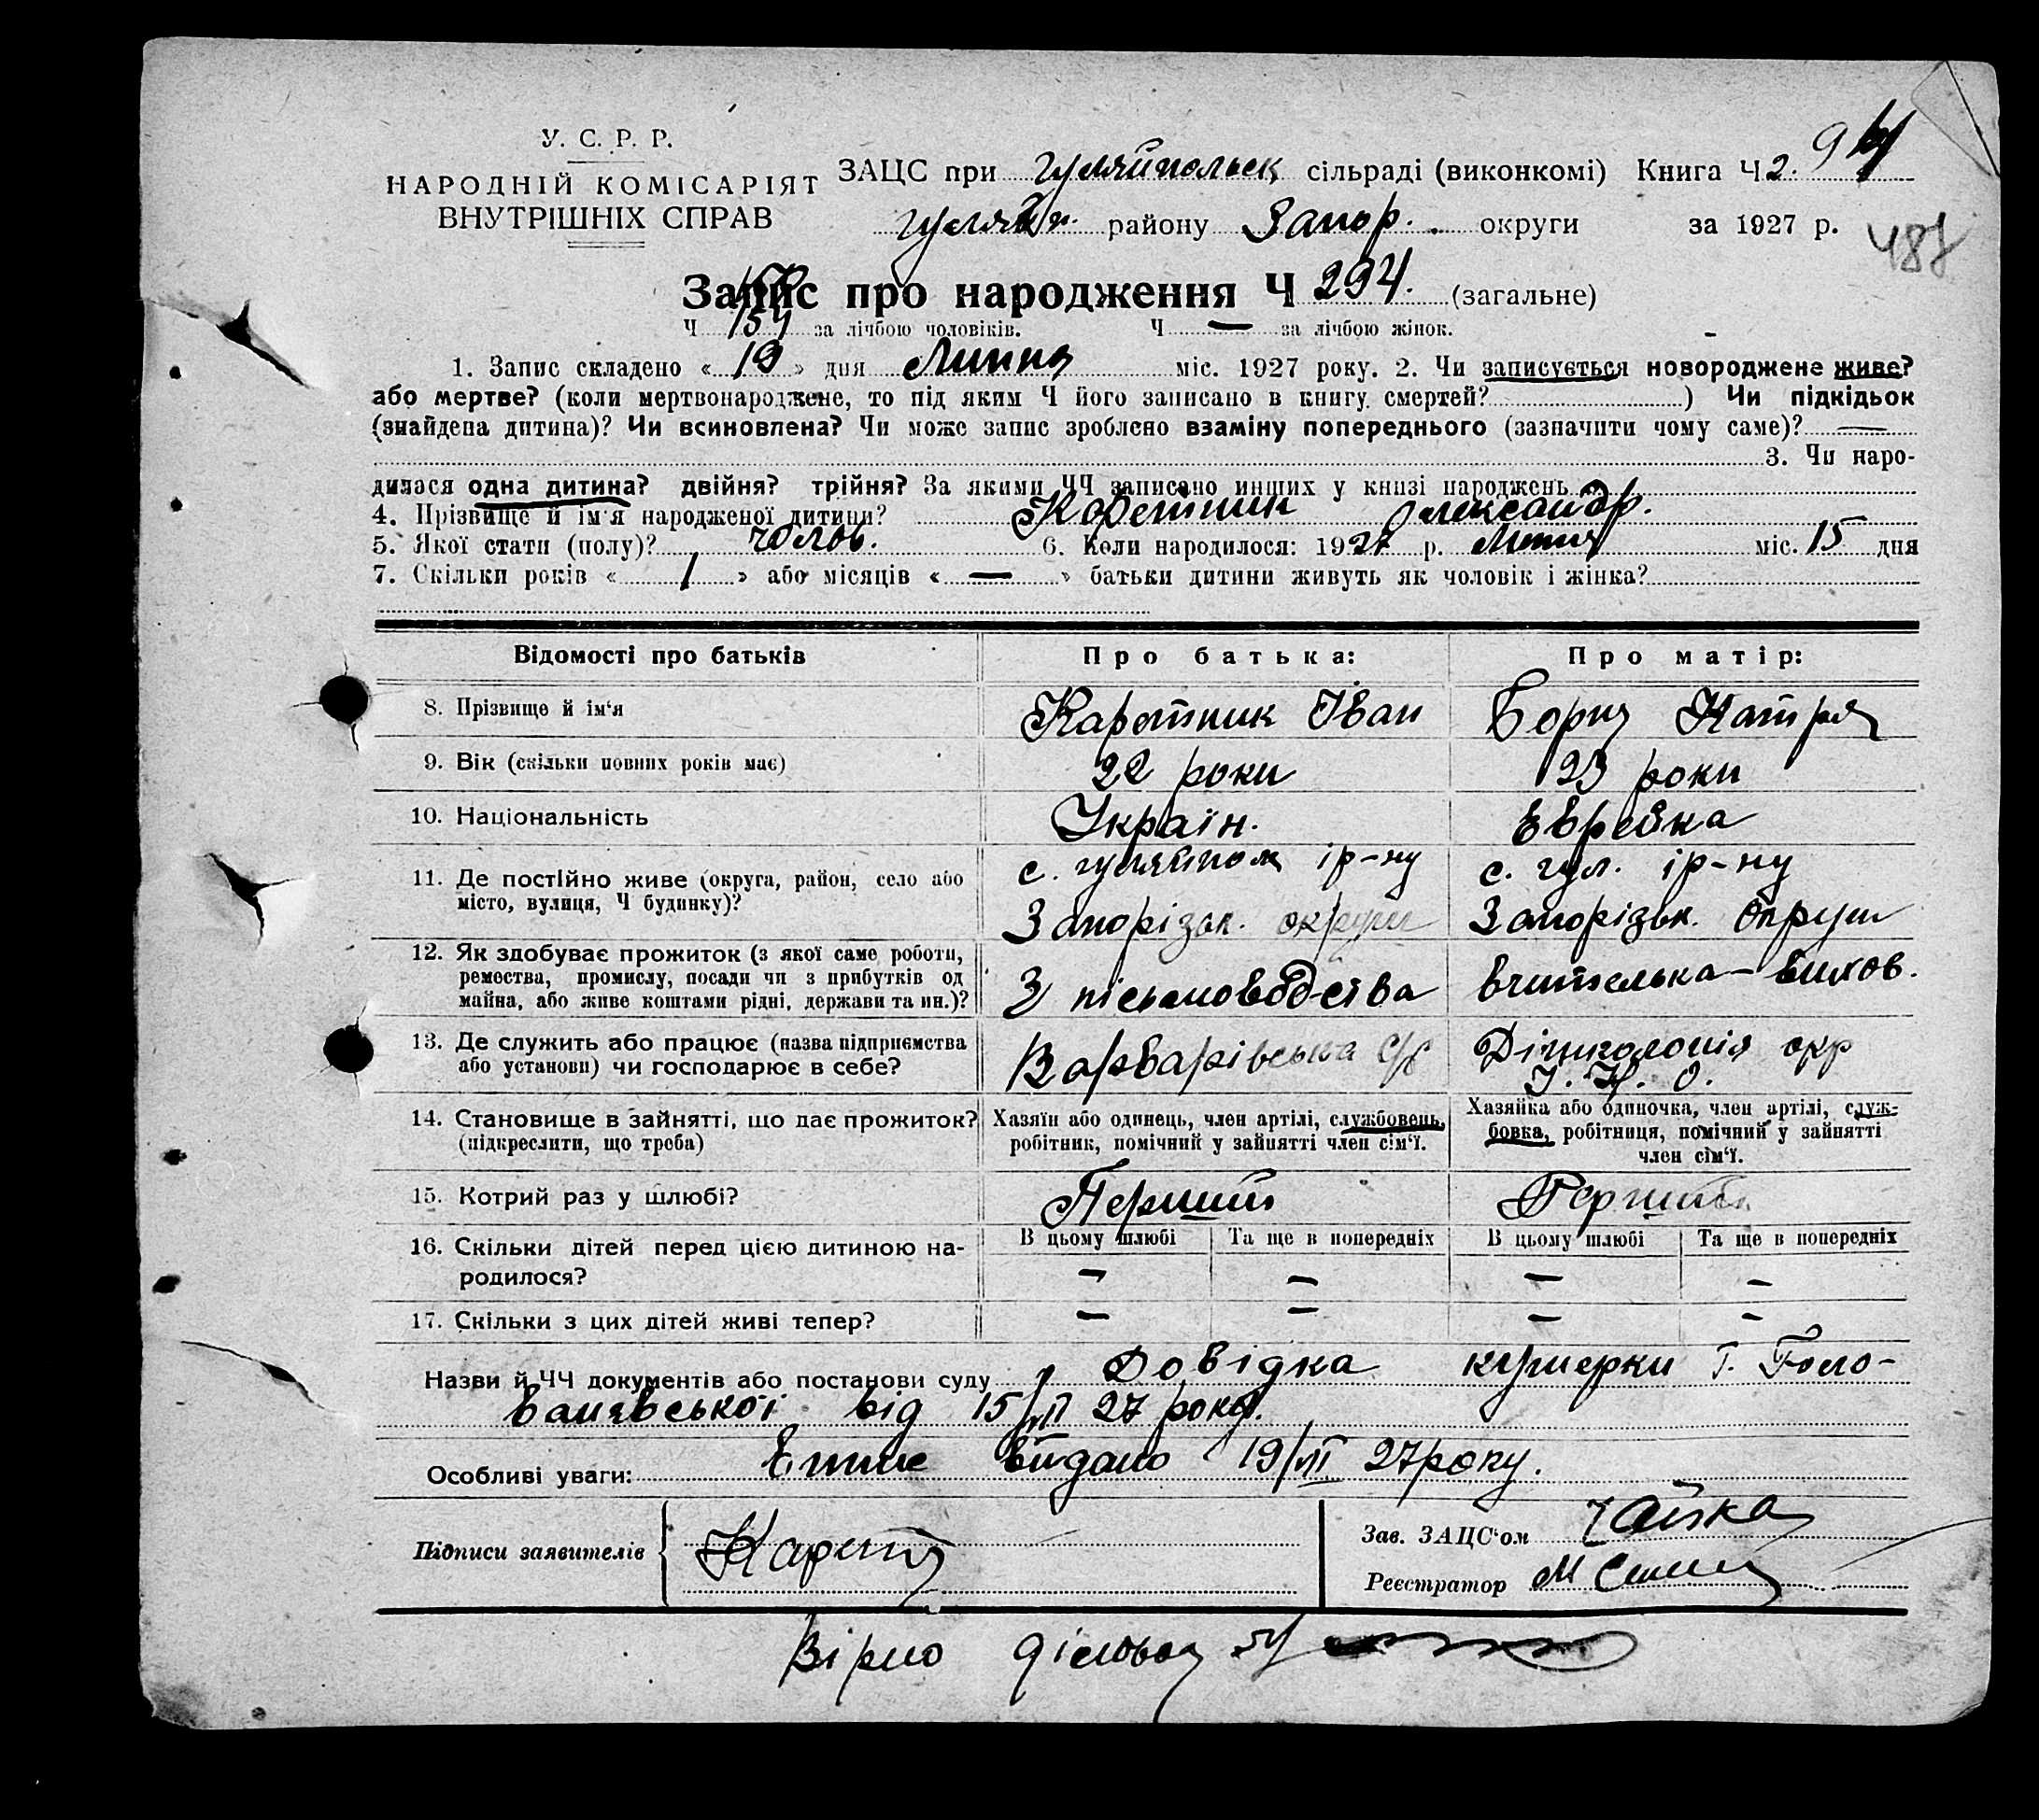 У. С. Р. Р.
НАРОДНІЙ КОМІСАРІЯТ
ВНУТРІШНІХ СПРАВ
ЗАЦС при Гуляйпольск сільраді (виконкомі) Книга Ч 2.
Гуляйп. району Запор. округи за 1927 р.
487
Запис про народження Ч 294. (загальне)
Ч 154 за лічбою чоловіків. Ч — за лічбою жінок.
1. Запис складено « 19 » дня Липня міс. 1927 року. 2. Чи записується новороджене живе?
або мертве? (коли мертвонароджене, то під яким Ч його записано в книгу смертей? ) Чи підкідьок
(знайдена дитина)? Чи всиновлена? Чи може запис зроблено взаміну попереднього (зазначити чому саме)? —
3. Чи наро-
дилася одна дитина? двійня? трійня? За якими ЧЧ записано инших у книзі народжень
4. Прізвище й ім'я народженої дитини? Коретник Олександр.
5. Якої стати (полу)? чолов. 6. Коли народилося: 1927 р. Липня міс. 15 дня
7. Скільки років « 1 » або місяців « — » батьки дитини живуть як чоловік і жінка?
Відомості про батьків
Про батька:
Про матір:
8. Прізвище й ім'я
Каретник Іван
Борц Катря
9. Вік (скільки повних років має)
22 роки
23 роки
10. Національність
Україн.
Еврейка
11. Де постійно живе (округа, район, село або
місто, вулиця, Ч будинку)?
с. Гуляйпол ір-ну
Запорізьк. округи
с. Гул. ір-ну
Запорізьк. округи
12. Як здобуває прожиток (з якої саме роботи,
ремества, промислу, посади чи з прибутків од
майна, або живе коштами рідні, держави та ин.)?
З пісьмоводства
вчителька – вихов.
13. Де служить або працює (назва підприємства
або установи) чи господарює в себе?
Варварівська с/р
окр
І. Н. О.
14. Становище в зайнятті, що дає прожиток?
(підкреслити, що треба)
Хазяїн або одинець, член артілі, службовець,
робітник, помічний у зайнятті член сім'ї.
Хазяйка або одиночка, член артілі, служ-
бовка, робітниця, помічний у зайнятті
член сім'ї.
15. Котрий раз у шлюбі?
Перший
Перший
16. Скільки дітей перед цією дитиною на-
родилося?
В цьому шлюбі
Та ще в попередніх
В цьому шлюбі
Та ще в попередніх
— — — —
17. Скільки з цих дітей живі тепер?
— — — —
Назви й ЧЧ документів або постанови суду Довідка кушерки Г. Голо-
ванівської від 15/VII 27 року.
Особливі уваги: видано 19/VII 27 року.
Підписи заявителів
Карет
Зав. ЗАЦС'ом Чайка
Реєстратор М
Вірно Діловод